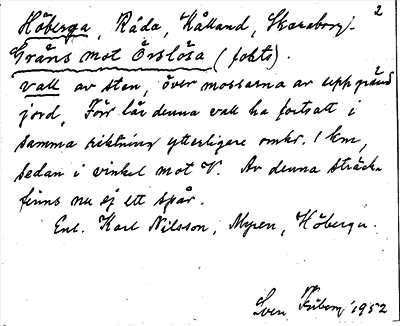 2
Höberga, Råda, Kålland, Skaraborg.
Gräns mot Örslösa (forts).
Vall av sten, över mossarna av uppgrävd
jord. Förr lär denna vall ha fortsatt i
samma riktning ytterligare omkr. 1 km,
sedan i vinkel mot V. Av denna sträcka
finns nu ej ett spår.
Enl. Karl Nilsson, Myren, Höberga.
Sven Friberg 1952